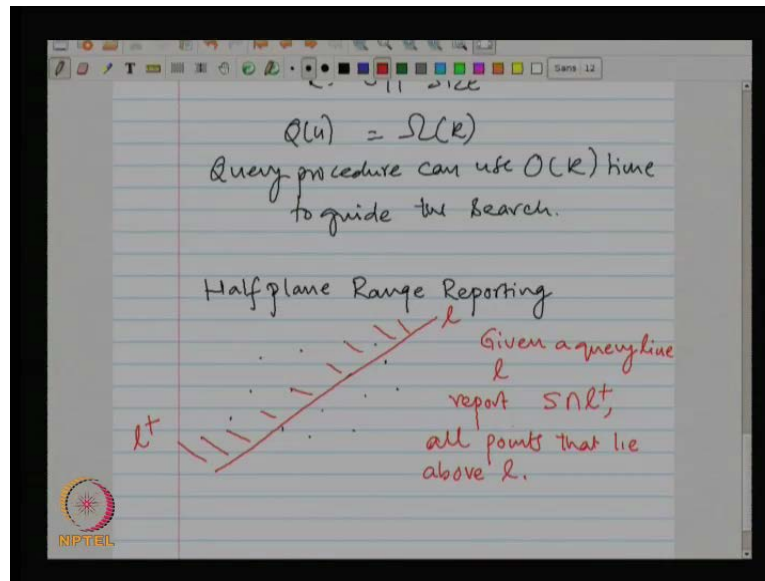 Sans 12
Q(n) = Ω(k)
Query procedure can use O(k) time
to guide the search.
Halfplane Range Reporting
l
Given a query line
l
report S∩l⁺,
l⁺
all points that lie
above l.
NPTEL